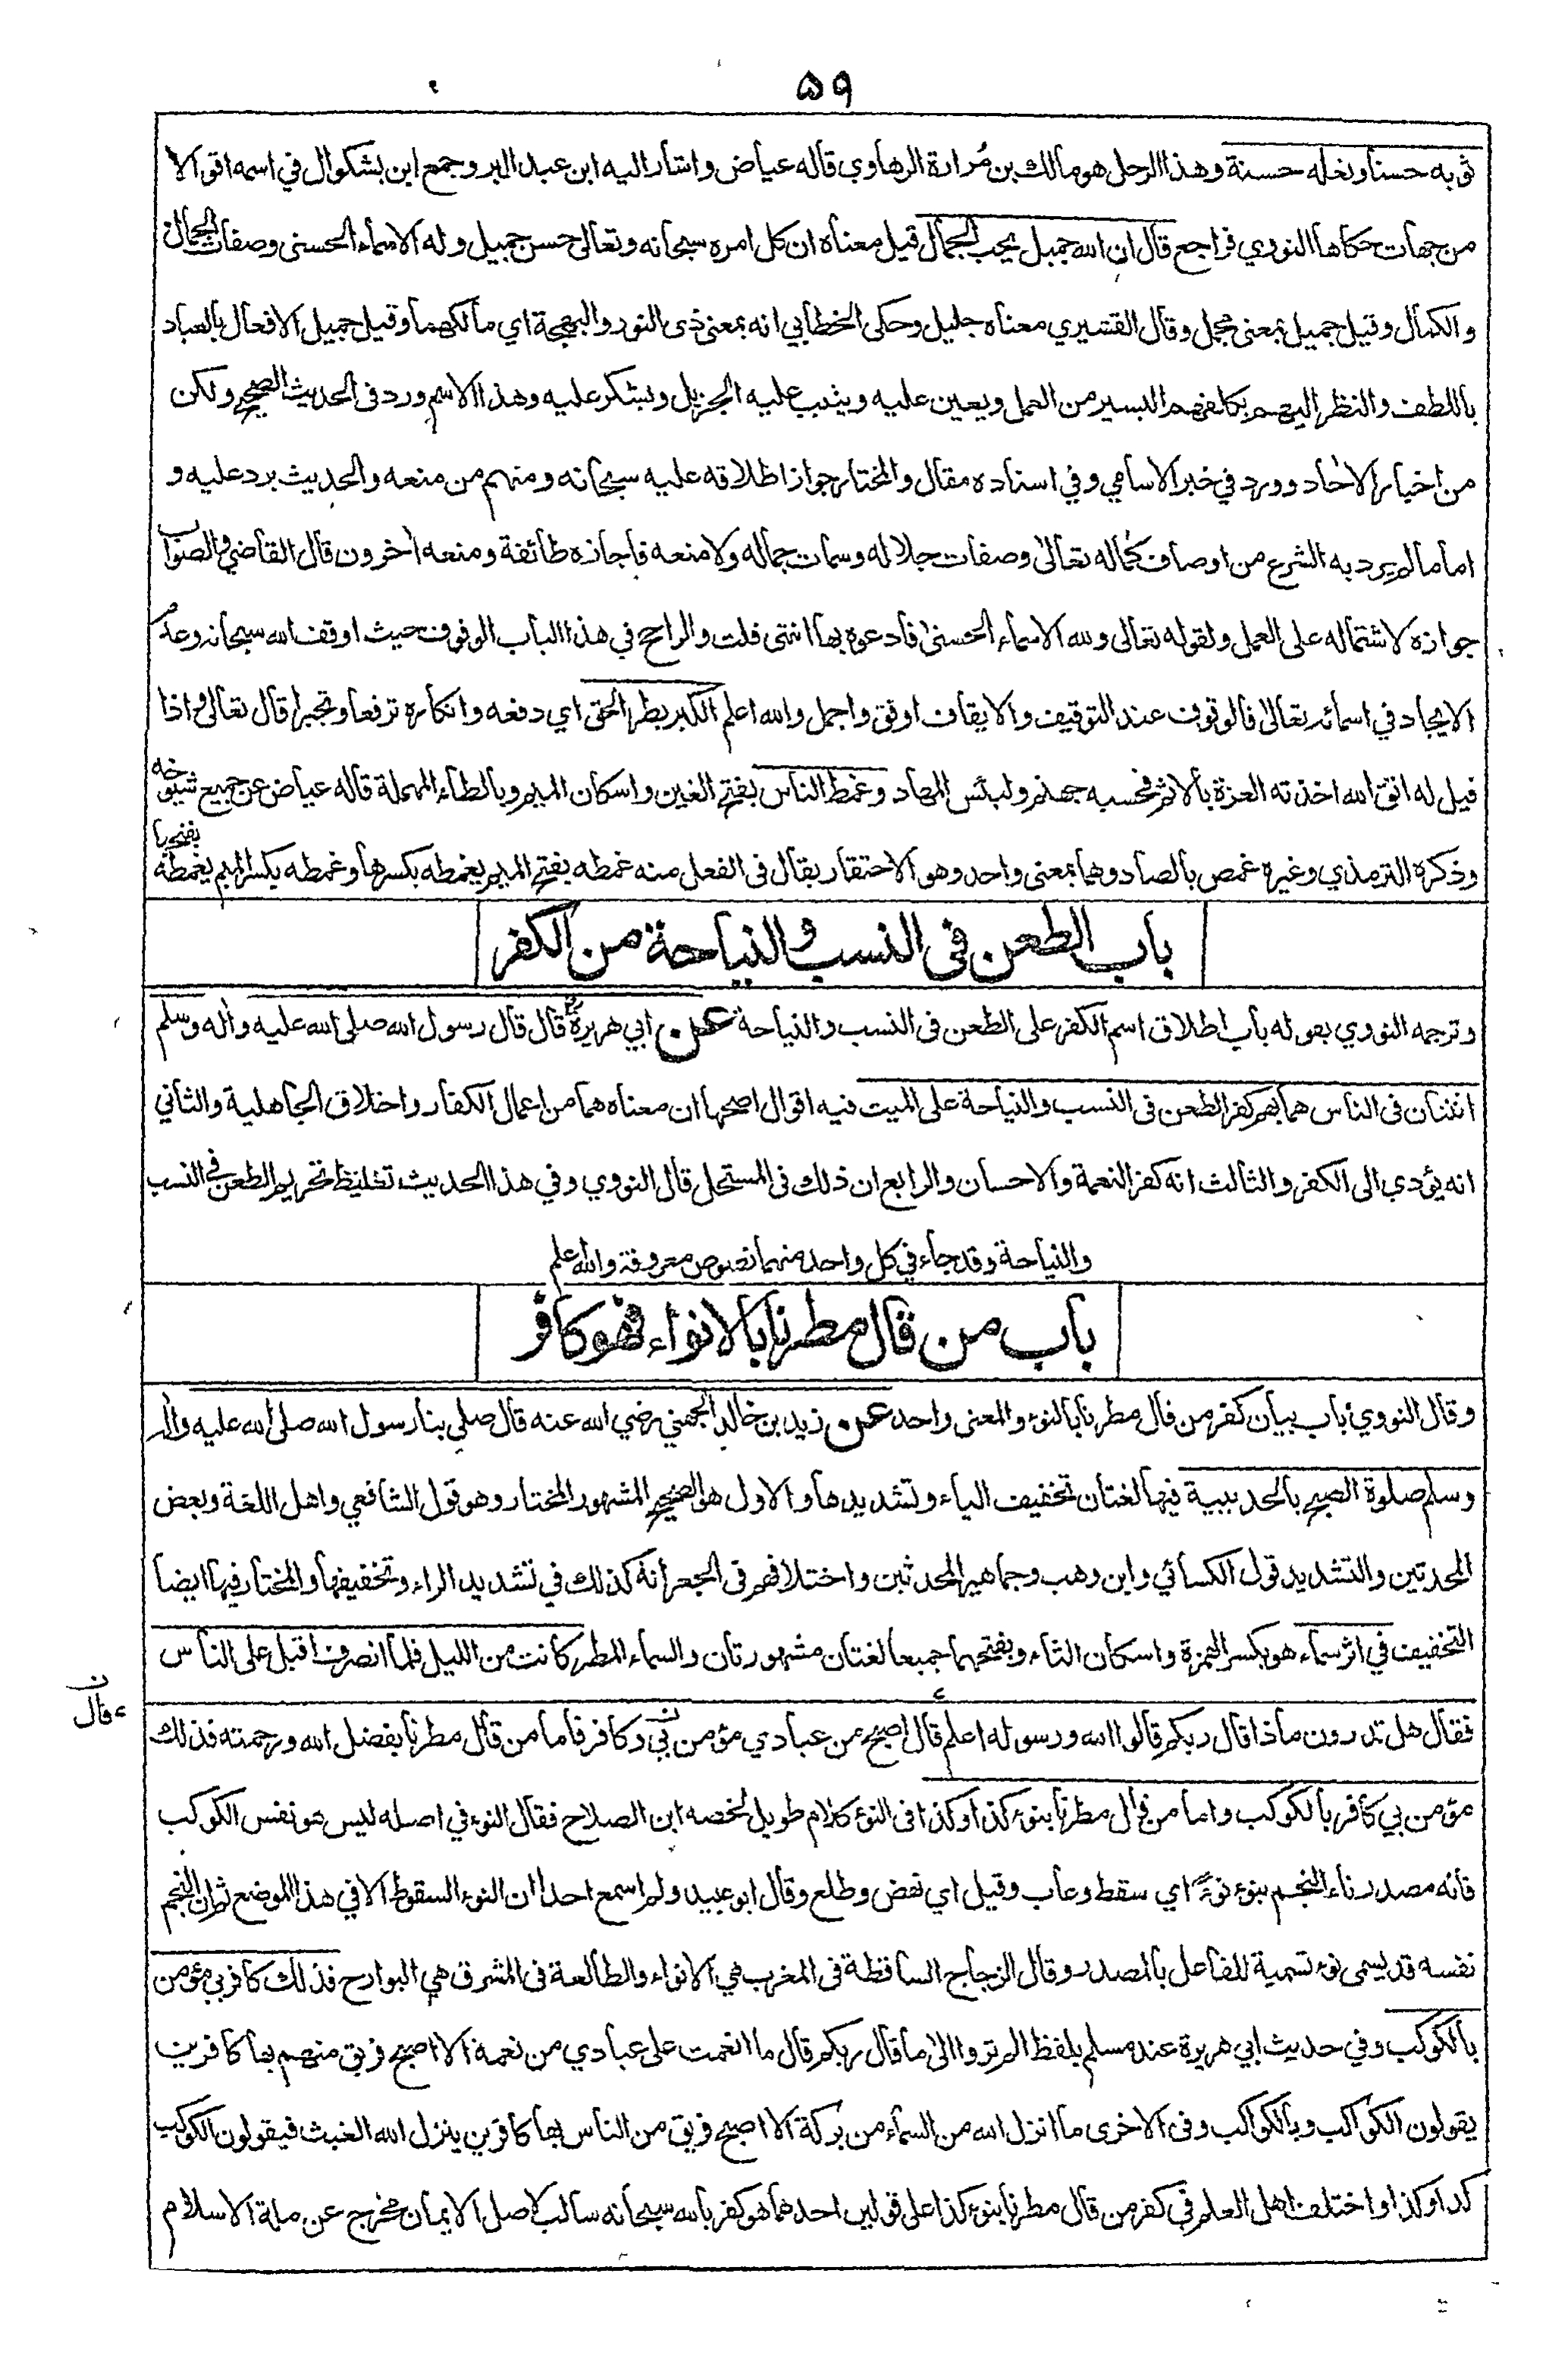 ٥٩
ثوبه حسنا ونعله حسنة وهذا الرجل هو مالك بن مُرارة الرهاوي قاله عياض واشار اليه ابن عبد البر وجمع ابن بشكوال في اسمه اقوالا
من جهات حكاها النووي فراجع قال ان الله جميل يحب الجمال قيل معناه ان كل امره سبحانه وتعالى حسن جميل وله الاسماء الحسنى وصفات الجمال
والكمال وقيل جميل بمعنى مجمل وقال القشيري معناه جليل وحكى الخطابي انه بمعنى ذى النور والبهجة اي مالكهما وقيل جميل الافعال بالعباد
باللطف والنظر اليهم يكلفهم اليسير من العمل ويعين عليه ويثيب عليه الجزيل ويشكر عليه وهذا الاسم ورد فى الحديث الصحيح ولكن
من اخبار الاحاد وورد في خبر الاسامي وفي اسناده مقال والمختار جواز اطلاقه عليه سبحانه ومنهم من منعه والحديث يرد عليه و
اما ما لم يرد به الشرع من اوصاف كماله تعالى وصفات جلاله وسمات جماله ولا منعه فاجازه طائفة ومنعه اخرون قال القاضي والصواب
جوازه لاشتماله على العمل ولقوله تعالى ولله الاسماء الحسنى فادعوه بها انتهى قلت والراجح في هذا الباب الوقوف حيث اوقف الله سبحانه وعدم
الايجاد في اسمائه تعالى فالوقوف عند التوقيف والايقاف اوفق واجمل والله اعلم الكبر بطر الحق اي دفعه وانكاره ترفعا وتجبرا قال تعالى واذا
قيل له اتق الله اخذته العزة بالاثم فحسبه جهنم ولبئس المهاد وغمط الناس بفتح الغين واسكان الميم وبالطاء المهملة قاله عياض عن جميع شيوخه
وذكره الترمذي وغيره غمص بالصاد وهما بمعنى واحد وهو الاحتقار يقال فى الفعل منه غمطه بفتح الميم يغمطه بكسرها وغمطه بكسر الميم يغمطه بفتحها
باب الطعن فى النسب والنياحة من الكفر
وترجمه النووي بقوله باب اطلاق اسم الكفر على الطعن فى النسب والنياحة عن ابي هريرة رض قال قال رسول الله صلى الله عليه واله وسلم
اثنتان فى الناس هما بهم كفر الطعن فى النسب والنياحة على الميت فيه اقوال اصحها ان معناه هما من اعمال الكفار واخلاق الجاهلية والثاني
انه يؤدي الى الكفر والثالث انه كفر النعمة والاحسان والرابع ان ذلك فى المستحل قال النووي وفي هذا الحديث تغليظ تحريم الطعن في النسب
والنياحة وقد جاء في كل واحد منهما نصوص معروفة والله اعلم
باب من قال مطرنا بالانواء فهو كافر
وقال النووي باب بيان كفر من قال مطرنا بالنوء والمعنى واحد عن زيد بن خالد الجهني رضي الله عنه قال صلى بنا رسول الله صلى الله عليه واله
وسلم صلوة الصبح بالحديبية فيها لغتان تخفيف الياء وتشديدها والاول هو الصحيح المشهور المختار وهو قول الشافعي واهل اللغة وبعض
المحدثين والتشديد قول الكسائي وابن وهب وجماهير المحدثين واختلافهم فى الجعرانة كذلك في تشديد الراء وتخفيفها والمختار فيها ايضا
التخفيف في اثر سماء هو بكسر الهمزة واسكان الثاء وبفتحهما جميعا لغتان مشهورتان والسماء المطر كانت من الليل فلما انصرف اقبل على الناس
فقال هل تدرون ماذا قال ربكم قالوا الله ورسوله اعلم قال اصبح من عبادي مؤمن بي وكافر فاما من قال مطرنا بفضل الله ورحمته فذلك
ء قال ن
مؤمن بي كافر بالكوكب واما من قال مطرنا بنوء كذا وكذا فى النوء كلام طويل لخصه ابن الصلاح فقال النوء في اصله ليس هو نفس الكوكب
فانه مصدر ناء النجم ينوء نوءً اي سقط وغاب وقيل اي نهض وطلع وقال ابو عبيد ولم اسمع احدا ان النوء السقوط الا في هذا الموضع ثم ان النجم
نفسه قد يسمى نوء تسمية للفاعل بالمصدر وقال الزجاج الساقطة فى المغرب هي الانواء والطالعة فى المشرق هي البوارح فذلك كافر بي مؤمن
بالكوكب وفي حديث ابي هريرة عند مسلم بلفظ الم تروا الى ما قال ربكم قال ما انعمت على عبادي من نعمة الا اصبح فريق منهم بها كافرين
يقولون الكواكب وبالكواكب وفى الاخرى ما انزل الله من السماء من بركة الا اصبح فريق من الناس بها كافرين ينزل الله الغيث فيقولون الكوكب
كذا وكذا واختلف اهل العلم في كفر من قال مطرنا بنوء كذا على قولين احدهما هو كفر بالله سبحانه سالب لاصل الايمان مخرج عن ملة الاسلام